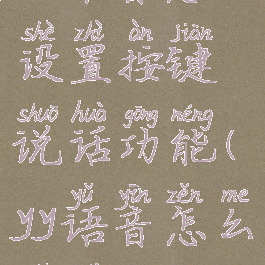 shè zhì àn jiàn
设置按键
shuō huà gōng néng
说话功能(
yǔ yīn zěn me
yy语音怎么